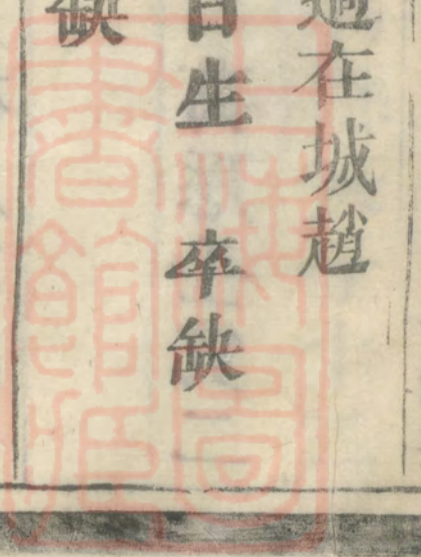 適在城趙
日生 卒缺
缺